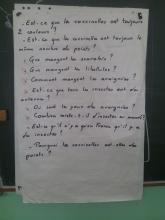 - Est-ce que les coccinelles ont toujours
2 couleurs ?
- Est-ce que les coccinelles ont toujours le
même nombre de points ?
- Que mangent les scarabés ?
- Que mangent les libellules ?
- Comment mangent les araignées ?
- Est-ce que tous les insectes ont des
antennes ?
- Où sont les yeux des araignées ?
- Combien existe-t-il d'insectes au monde ?
- Est-ce qu'il n'y a qu'en France qu'il y a
des insectes ?
- Pourquoi les coccinelles ont-elles des
points ?